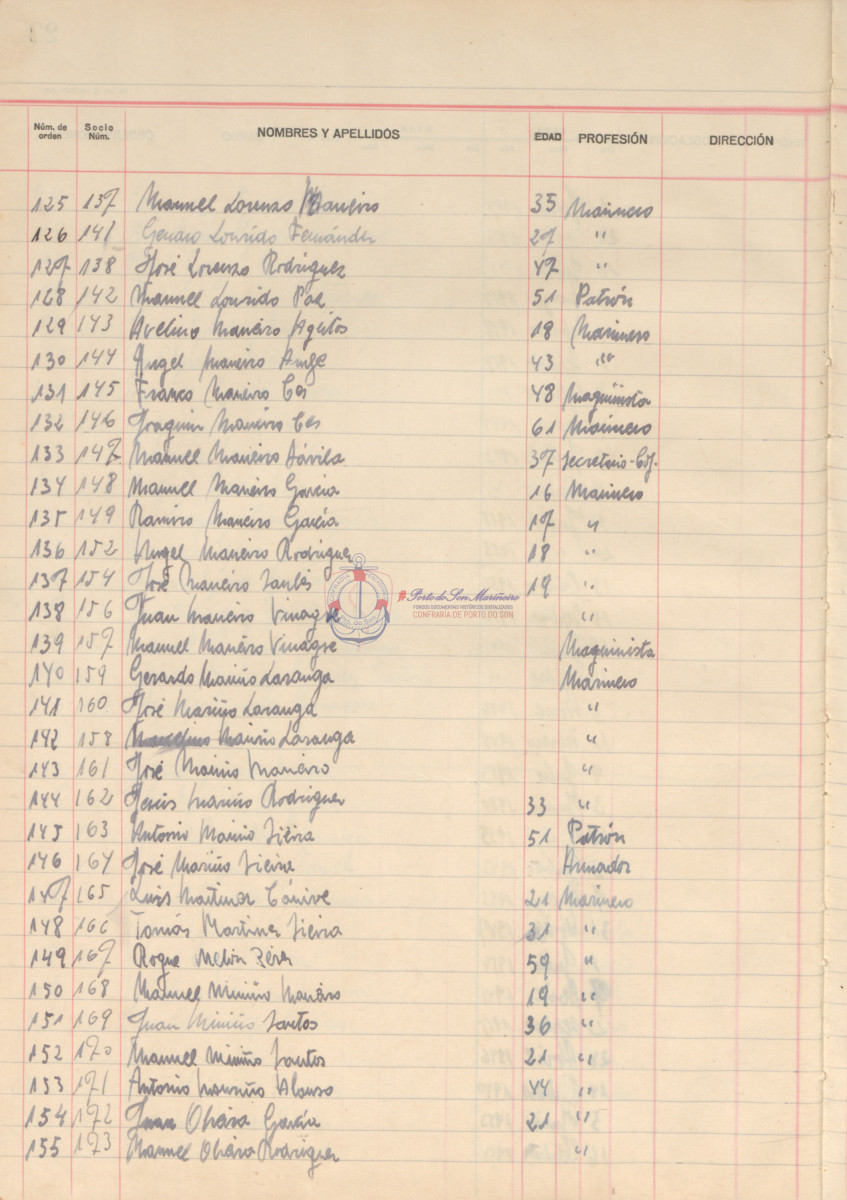 Núm. de orden Socio Núm. NOMBRES Y APELLIDOS EDAD PROFESIÓN DIRECCIÓN
125 137 Manuel Lorenzo Maneiro 35 Marinero
126 141 Genaro Lourido Fernández 27 "
127 138 José Lorenzo Rodriguez 47 "
128 142 Manuel Lourido Pae 51 Patrón
129 143 Avelino Maneiro Ageitos 18 Marinero
130 144 Angel Maneiro 43 "
131 145 Franco Maneiro Ces 48 Maquinista
132 146 Joaquin Maneiro Ces 61 Marinero
133 147 Manuel Maneiro Dávila 37 Secretario-Cof.
134 148 Manuel Maneiro Garcia 16 Marinero
135 149 Ramiro Maneiro García 17 "
136 152 Angel Maneiro Rodriguez 18 "
137 154 José Maneiro 19 "
138 156 Juan Maneiro Vinagre "
139 157 Manuel Maneiro Vinagre Maquinista
140 159 Gerardo Mariño Laranga Marinero
141 160 José Mariño Laranga "
142 158 Mariño Laranga "
143 161 José Mariño Maneiro "
144 162 Jesús Mariño Rodriguez 33 "
145 163 Antonio Mariño Vieira 51 Patrón
146 164 José Mariño Vieira Armador
147 165 Luis Martinez Cánive 21 Marinero
148 166 Tomás Martinez Vieira 31 "
149 167 Roque Melón Pérez 59 "
150 168 Manuel Miniño Maneiro 19 "
151 169 Juan Miniño Santos 36 "
152 170 Manuel Miniño Santos 21 "
153 171 Antonio Alonso 44 "
154 172 Juan García 21 "
155 173 Manuel Rodriguez "
#Porto do Son Mariñeiro
FONDOS DOCUMENTAIS HISTÓRICOS DIXITALIZADOS
CONFRARIA DE PORTO DO SON